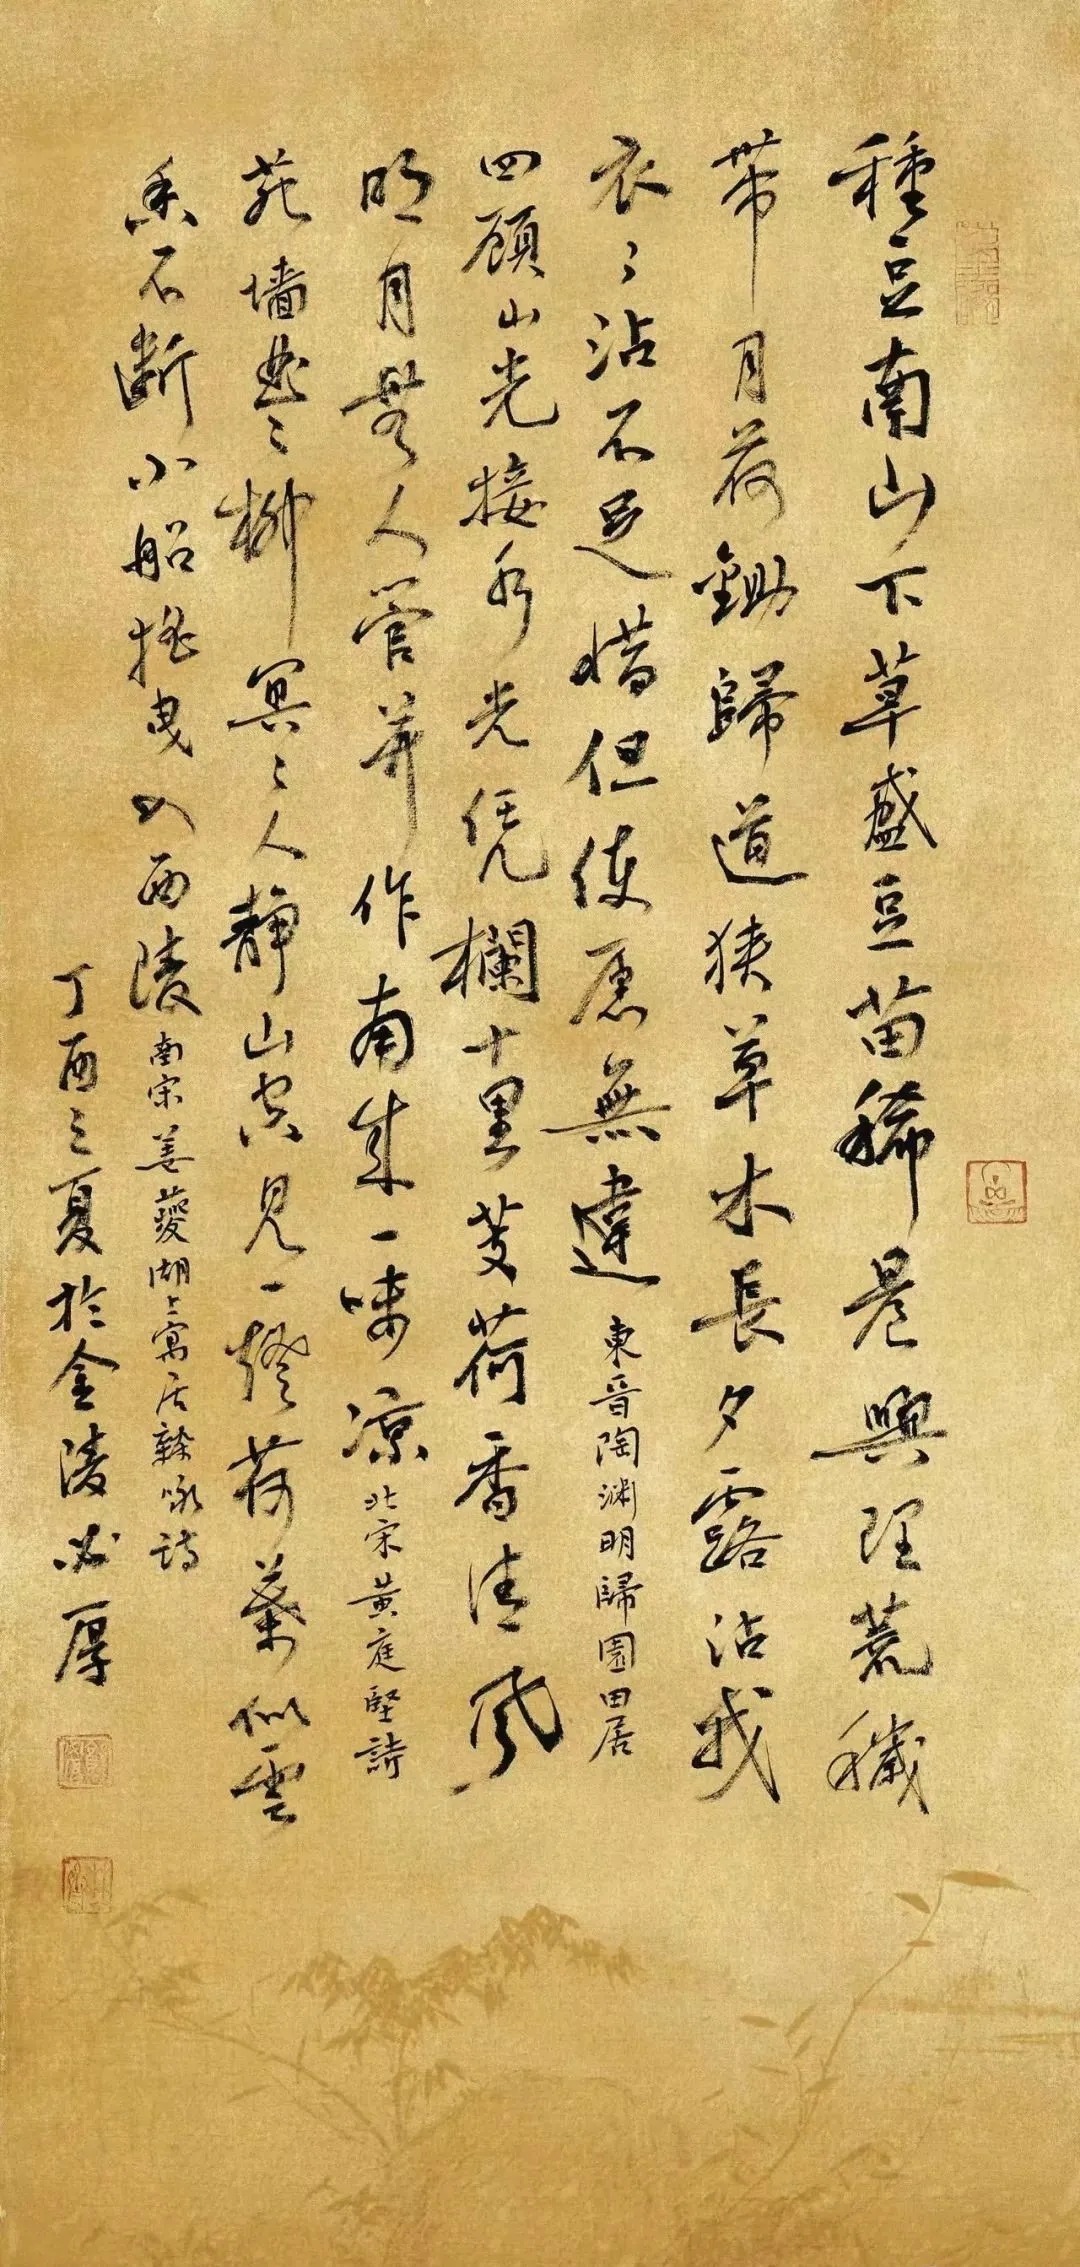 種豆南山下草盛豆苗稀晨興理荒穢
帶月荷鋤歸道狹草木長夕露沾我
衣〻沾不足惜但使愿無違東晉陶渊明歸園田居
四顧山光接水光凭欄十里芰荷香清風
明月無人管并作南來一味凉北宋黃庭堅詩
苑墙曲〻柳冥〻人靜山空見一燈荷葉似雲
香不断小船摇曳入西陵南宋姜夔湖上寓居雜咏詩
丁酉之夏於金陵必厚